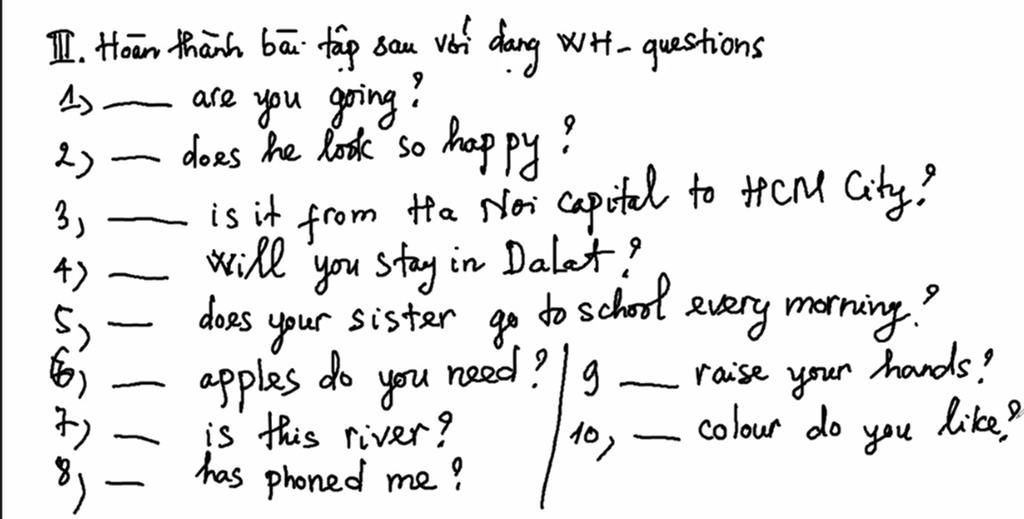 III. Hoàn thành bài tập sau với dạng WH- questions
1) ___ are you going?
2) ___ does he look so happy?
3, ___ is it from Ha Noi capital to HCM City?
4) ___ will you stay in Dalat?
5, ___ does your sister go to school every morning?
6, ___ apples do you need?
7, ___ is this river?
8, ___ has phoned me?
9 ___ raise your hands?
10, ___ colour do you like?